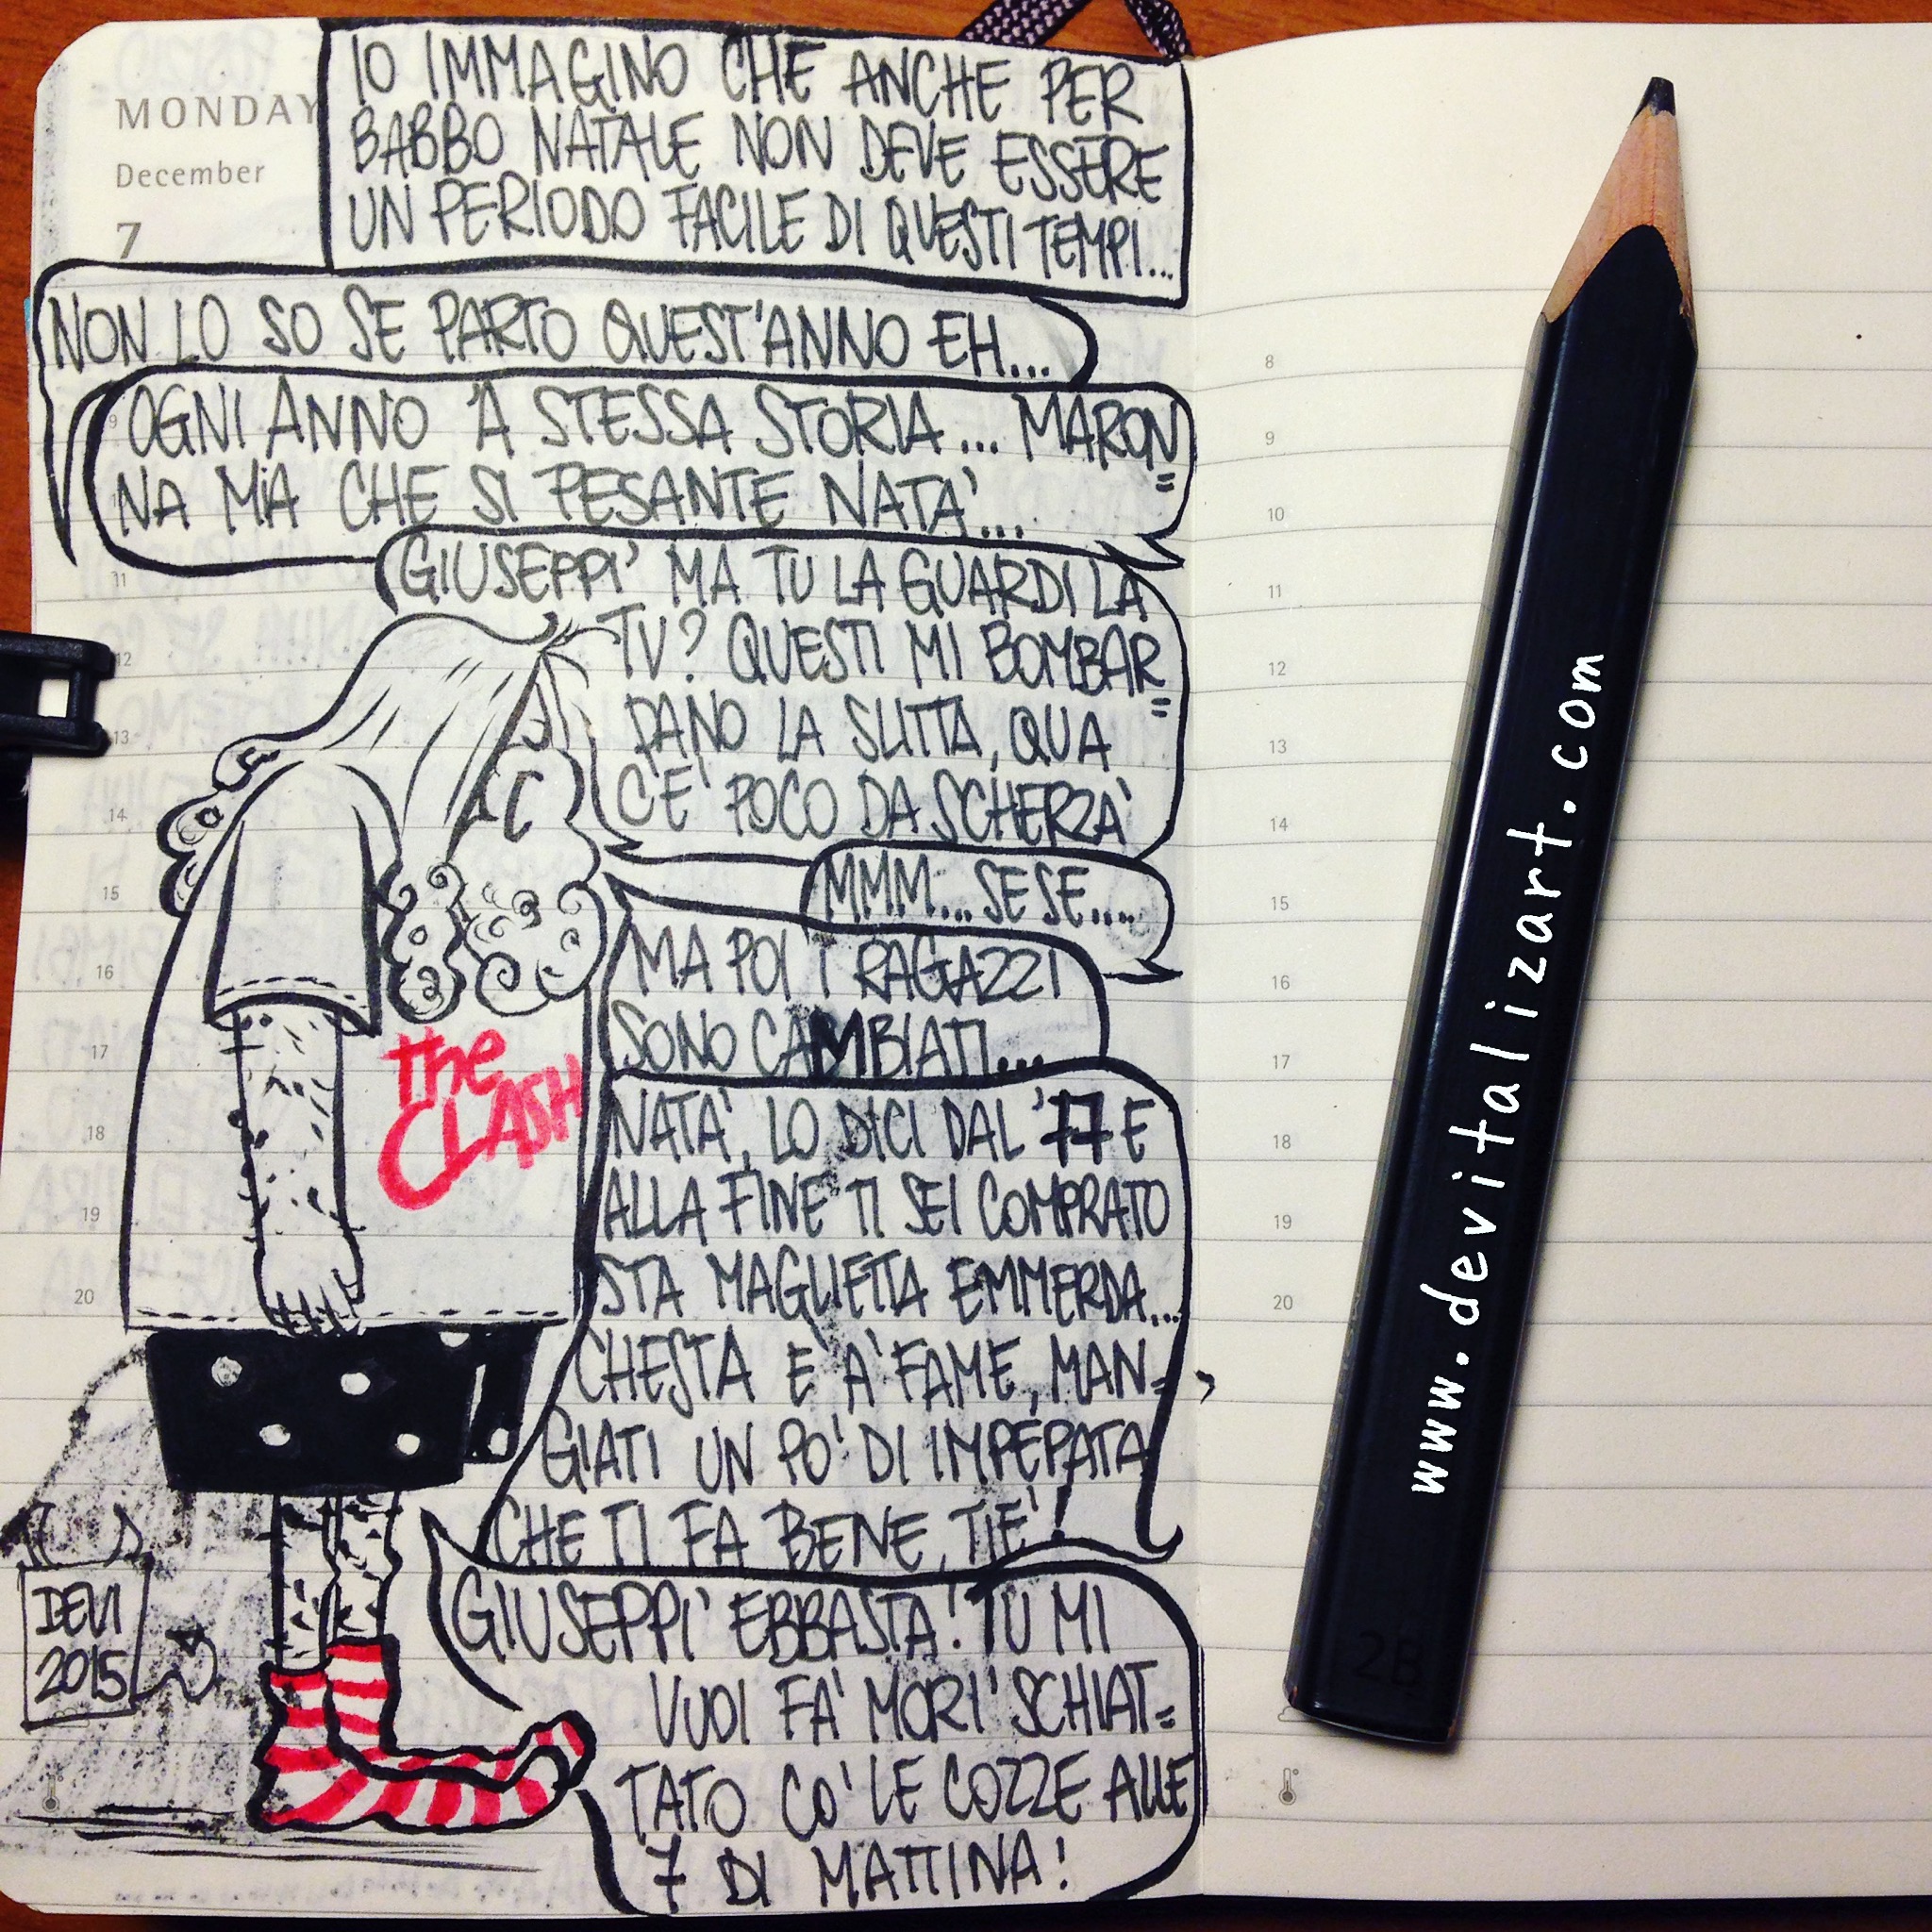 MONDAY
December
7
IO IMMAGINO CHE ANCHE PER
BABBO NATALE NON DEVE ESSERE
UN PERIODO FACILE DI QUESTI TEMPI...
NON LO SO SE PARTO QUEST'ANNO EH...
OGNI ANNO 'A STESSA STORIA... MARON=
NA MIA CHE SI PESANTE NATA'...
GIUSEPPI' MA TU LA GUARDI LA
TV? QUESTI MI BOMBAR=
DANO LA SLITTA, QUA
C'E' POCO DA SCHERZA'
MMM... SE SE....
MA POI I RAGAZZI
SONO CAMBIATI...
NATA', LO DICI DAL '77 E
ALLA FINE TI SEI COMPRATO
STA MAGLIETTA EMMERDA...
CHESTA E' A' FAME, MAN=
GIATI UN PO' DI IMPEPATA
CHE TI FA BENE, TIE'!
GIUSEPPI' EBBASTA! TU MI
VUOI FA' MORI' SCHIAT=
TATO CO' LE COZZE ALLE
7 DI MATTINA!
the
CLASH
DEVI
2015
9
11
12
13
14
15
16
17
18
19
20
8
9
10
11
12
13
14
15
16
17
18
19
20
www.devitalizart.com
2B